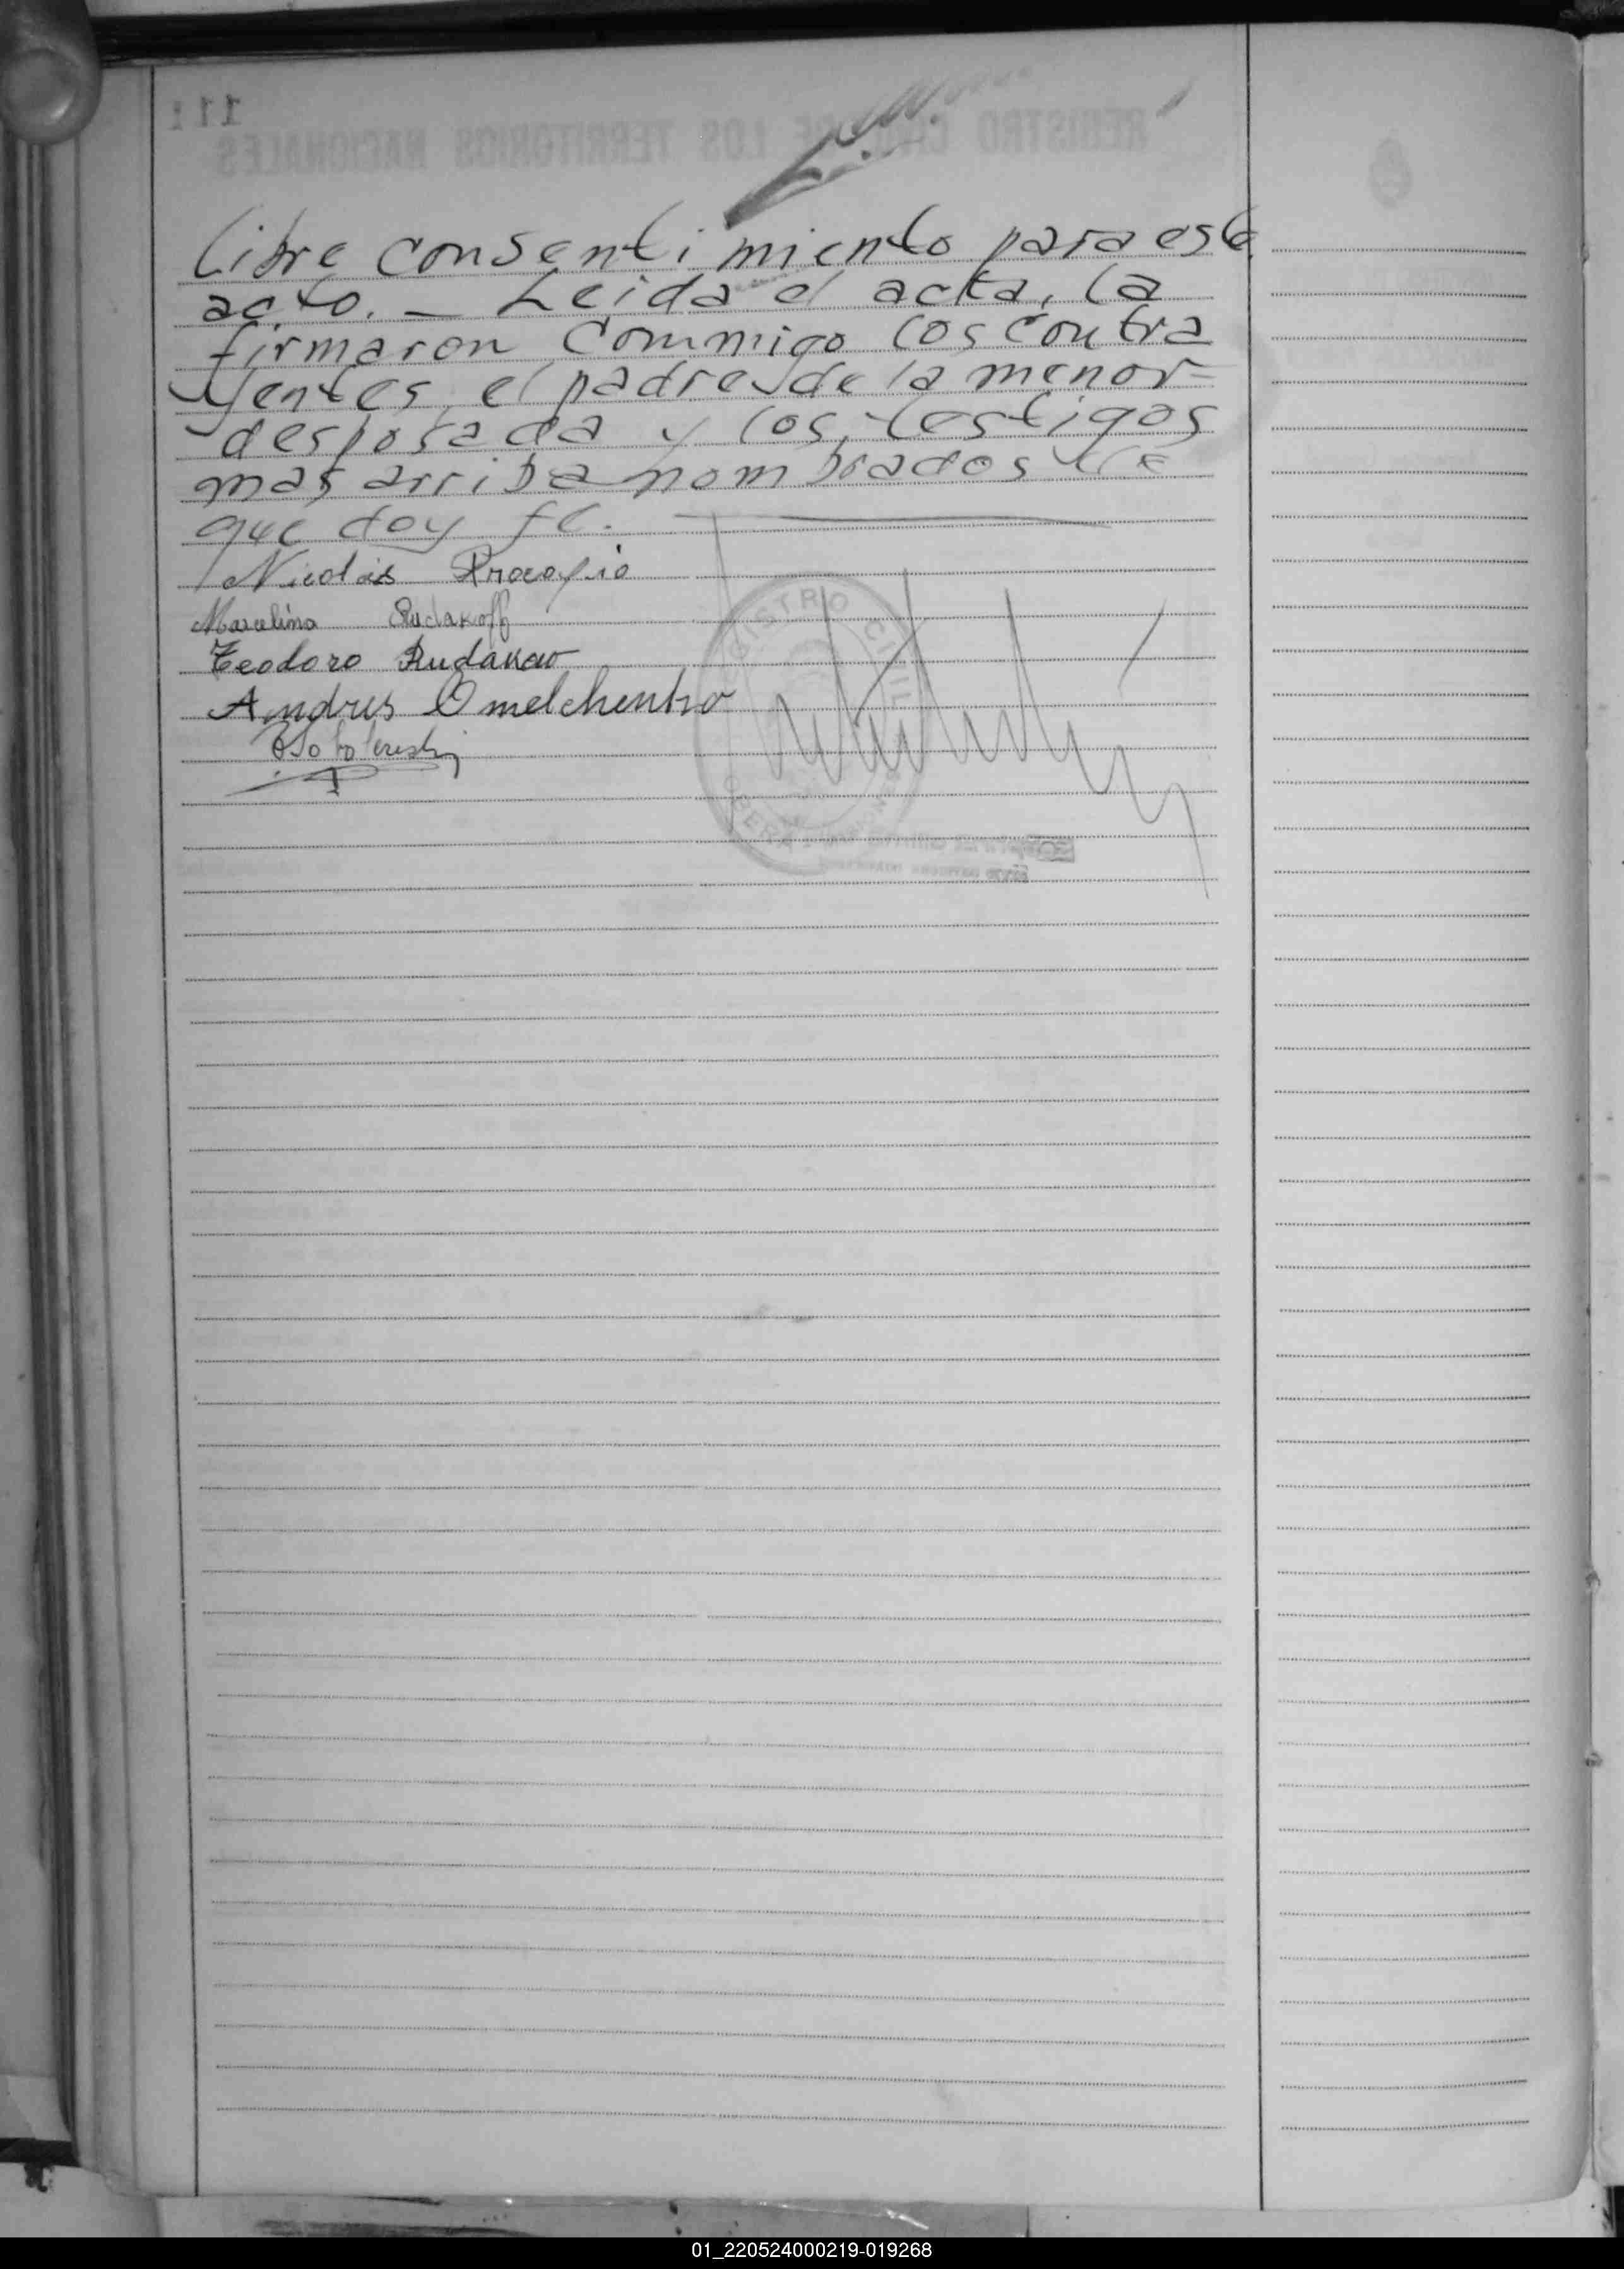 libre consentimiento para este
acto. — Leida el acta, la
firmaron commigo los contra
yentes, el padre de la menor
desposada y los testigos
mas arriba nombrados de
que doy fe.
Nicolás Procopio
Marcelina Rudakoff
Teodoro Rudakow
Andres Omelchenko
REGISTRO CIVIL
OBERA
01_220524000219-019268